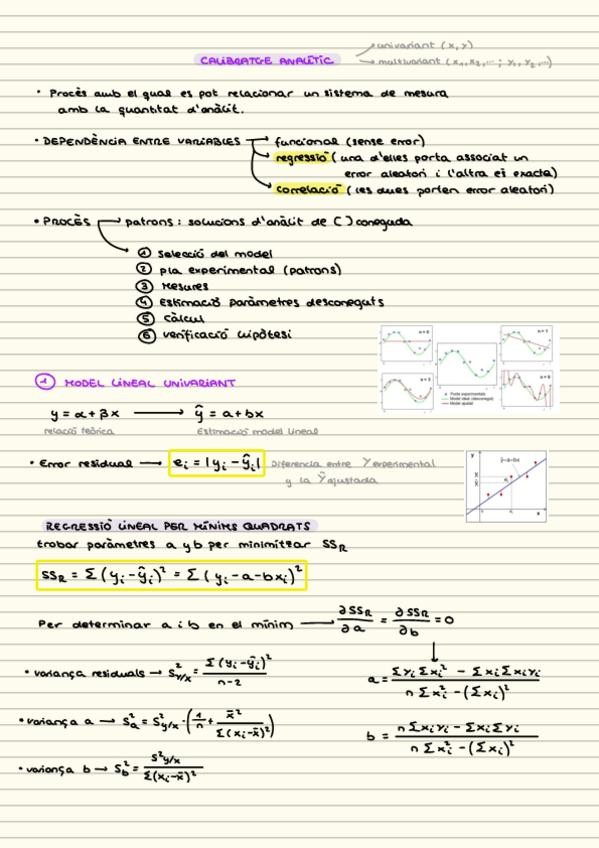 CALIBRATGE ANALÍTIC → univariant (x, y)
→ multivariant (x₁, x₂, ... ; y₁, y₂, ...)
• Procès amb el qual es pot relacionar un sistema de mesura
amb la quantitat d'anàlit.
• DEPENDÈNCIA ENTRE VARIABLES → funcional (sense error)
→ regressió (una d'elles porta associat un
error aleatori i l'altra és exacte)
→ correlació (les dues porten error aleatori)
• PROCÉS → patrons: solucions d'anàlit de [ ] coneguda
① Selecció del model
② pla experimental (patrons)
③ Mesures
④ Estimació paràmetres desconeguts
⑤ Càlcul
⑥ verificació hipòtesi
① MODEL LINEAL UNIVARIANT
y = α + βx → ŷ = a + bx
relació teòrica Estimació model lineal
• Error residual → eᵢ = |yᵢ - ŷᵢ| Diferencia entre Y experimental
y la Ŷ ajustada
REGRESSIÓ LINEAL PER MÍNIMS QUADRATS
trobar paràmetres a y b per minimitzar SS_R
SS_R = Σ(yᵢ - ŷᵢ)² = Σ(yᵢ - a - bxᵢ)²
Per determinar a i b en el mínim → ∂SS_R/∂a = ∂SS_R/∂b = 0
• variança residuals → S²y/x = Σ(yᵢ - ŷᵢ)² / n-2
a = (Σyᵢ Σxᵢ² - Σxᵢ Σxᵢyᵢ) / (n Σxᵢ² - (Σxᵢ)²)
• variança a → S²a = S²y/x · (1/n + x̄² / Σ(xᵢ - x̄)²)
b = (n Σxᵢyᵢ - Σxᵢ Σyᵢ) / (n Σxᵢ² - (Σxᵢ)²)
• variança b → S²b = S²y/x / Σ(xᵢ - x̄)²